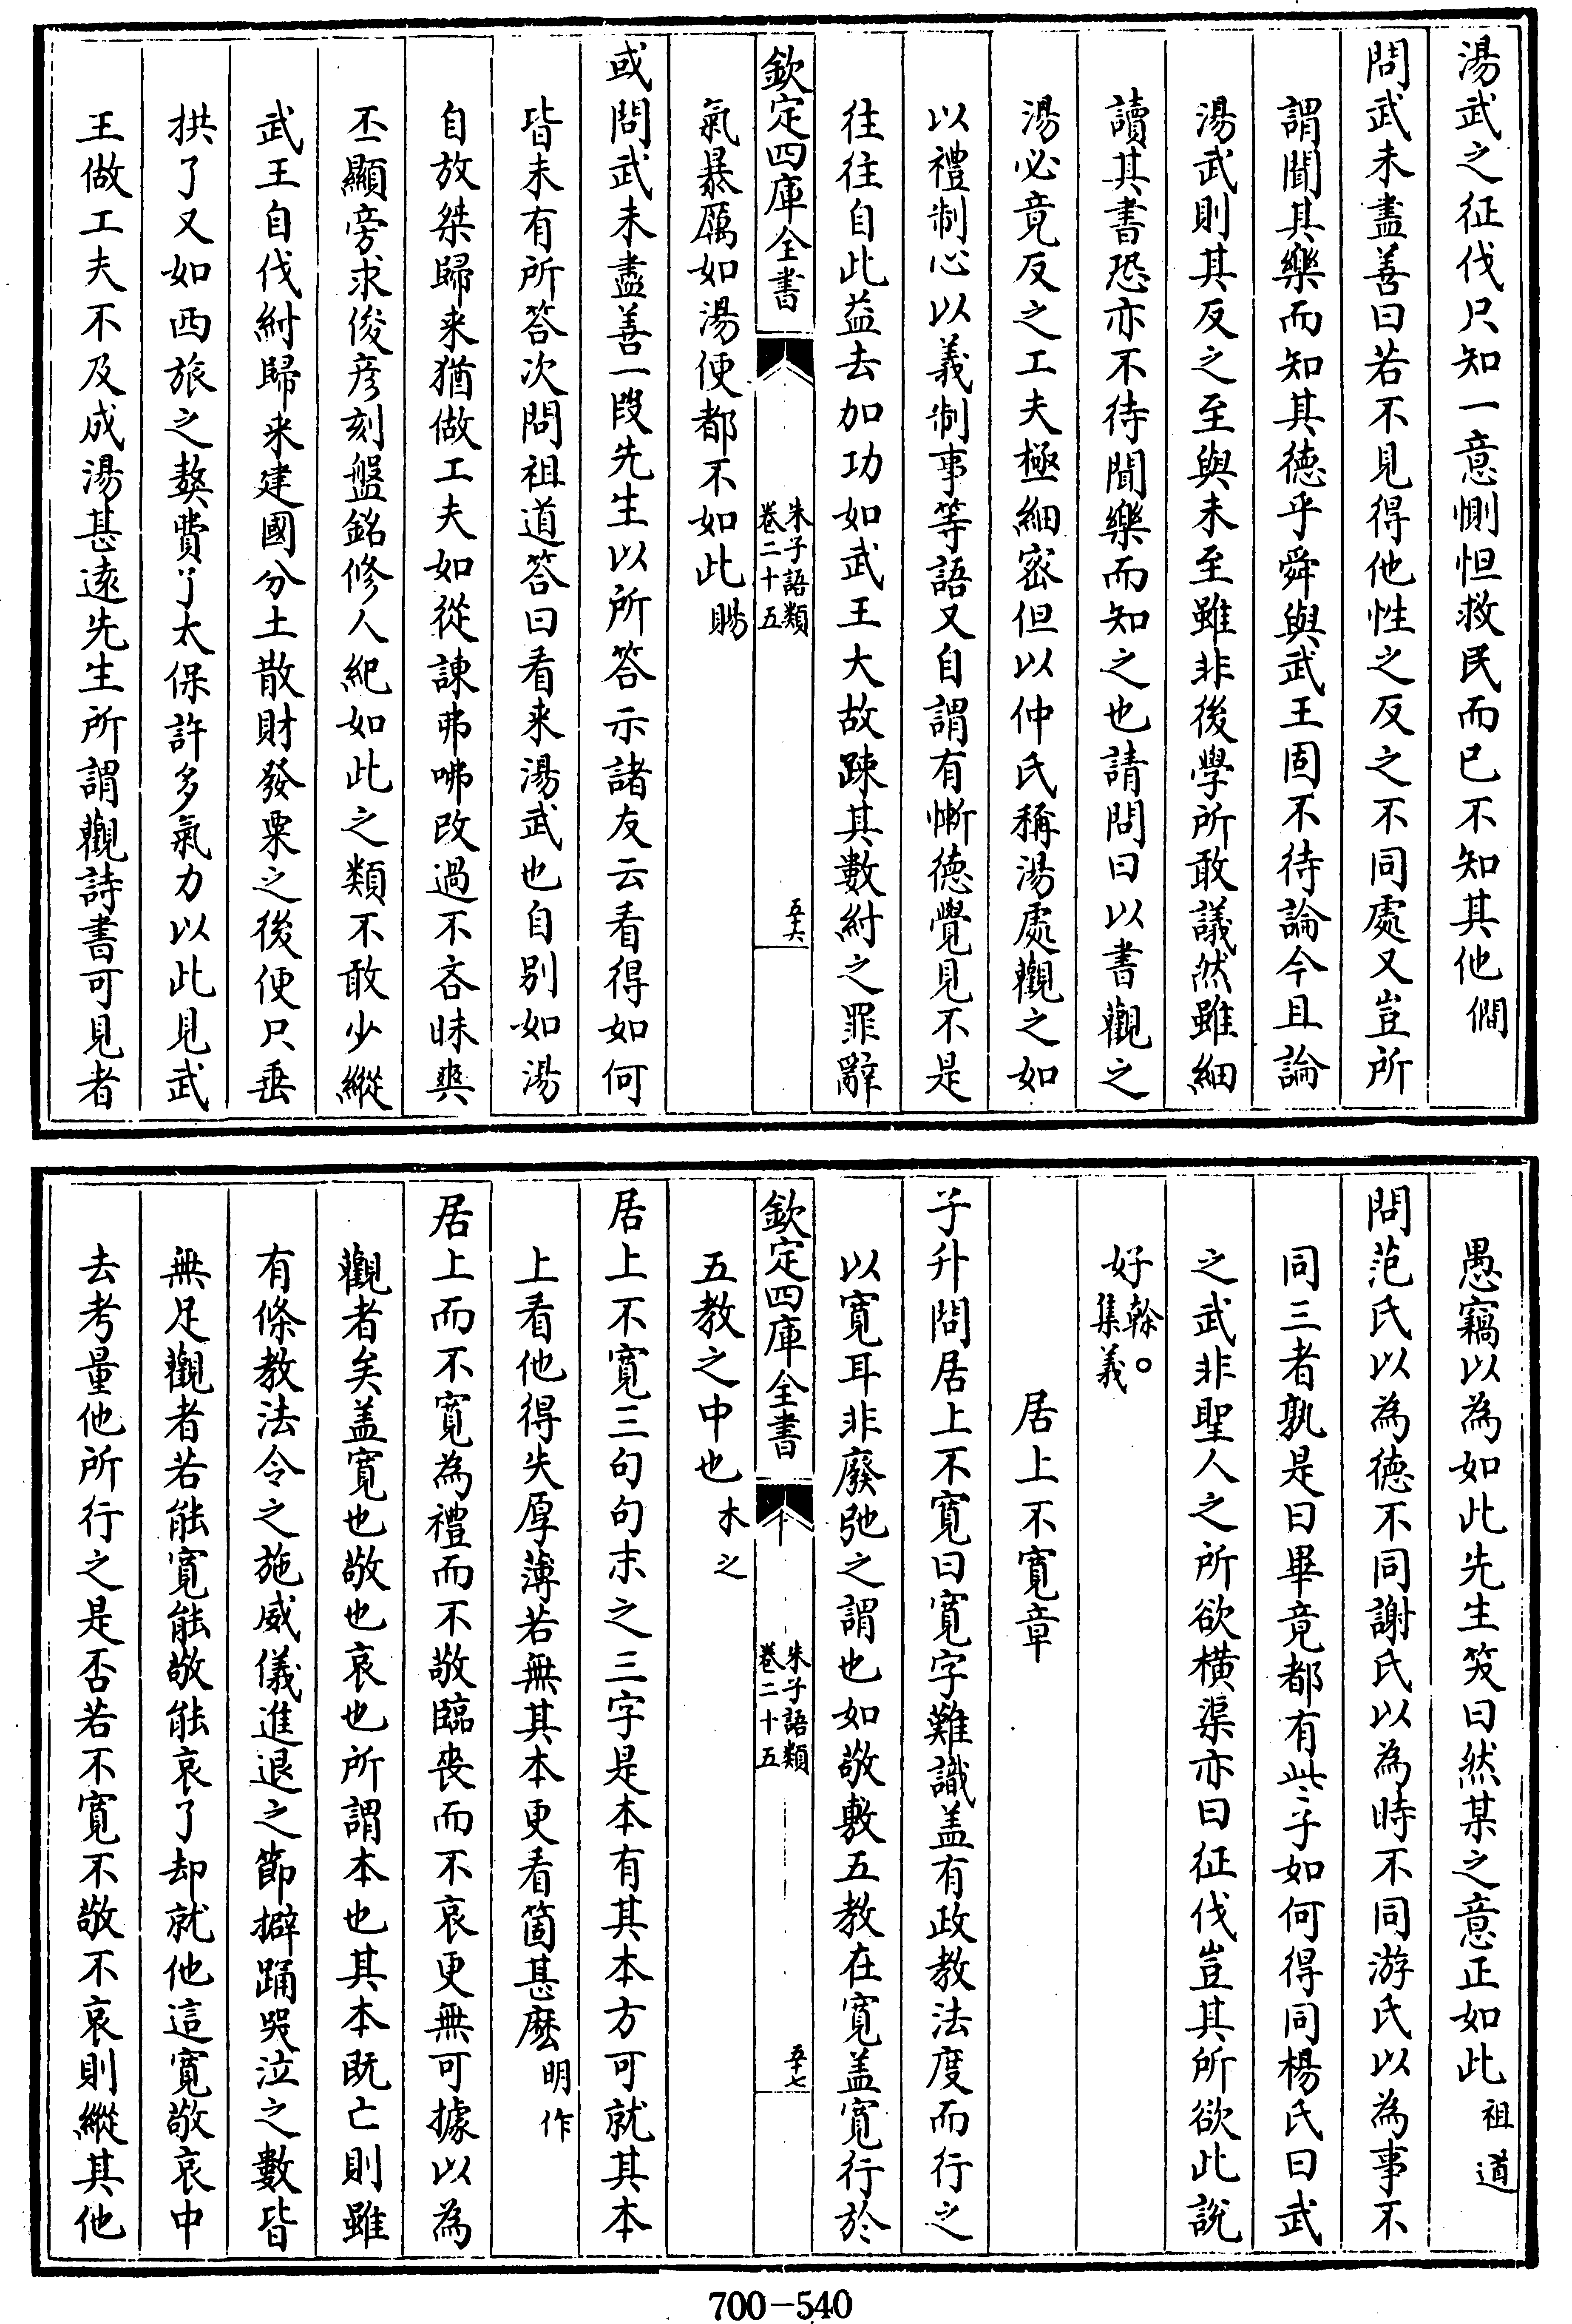 湯武之征伐只知一意惻怛救民而已不知其他僩
問武未盡善曰若不見得他性之反之不同處又豈所
謂聞其樂而知其德乎舜與武王固不待論今且論
湯武則其反之至與未至雖非後學所敢議然雖細
讀其書恐亦不待聞樂而知之也請問曰以書觀之
湯必竟反之工夫極細密但以仲氏稱湯處觀之如
以禮制心以義制事等語又自謂有慚德覺見不是
往往自此益去加功如武王大故疎其數紂之罪辭
欽定四庫全書
朱子語類
卷二十五
五十六
氣暴厲如湯便都不如此賜
或問武未盡善一段先生以所答示諸友云看得如何
皆未有所答次問祖道答曰看来湯武也自別如湯
自放桀歸来猶做工夫如從諫弗咈改過不吝昧爽
丕顯旁求俊彦刻盤銘修人紀如此之類不敢少縱
武王自伐紂歸来建國分土散財發粟之後便只垂
拱了又如西旅之獒費了太保許多氣力以此見武
王做工夫不及成湯甚遠先生所謂觀詩書可見者
愚竊以為如此先生笑曰然某之意正如此祖道
問范氏以為德不同謝氏以為時不同游氏以為事不
同三者孰是曰畢竟都有些子如何得同楊氏曰武
之武非聖人之所欲橫渠亦曰征伐豈其所欲此說
好榦○
集義
居上不寛章
子升問居上不寛曰寛字難識盖有政教法度而行之
以寛耳非廢弛之謂也如敬敷五教在寛盖寛行於
欽定四庫全書
朱子語類
卷二十五
五十七
五教之中也木之
居上不寛三句句末之三字是本有其本方可就其本
上看他得失厚薄若無其本更看箇甚麽明作
居上而不寛為禮而不敬臨喪而不哀更無可據以為
觀者矣盖寛也敬也哀也所謂本也其本既亡則雖
有條教法令之施威儀進退之節擗踊哭泣之數皆
無足觀者若能寛能敬能哀了却就他這寛敬哀中
去考量他所行之是否若不寛不敬不哀則縱其他
700-540